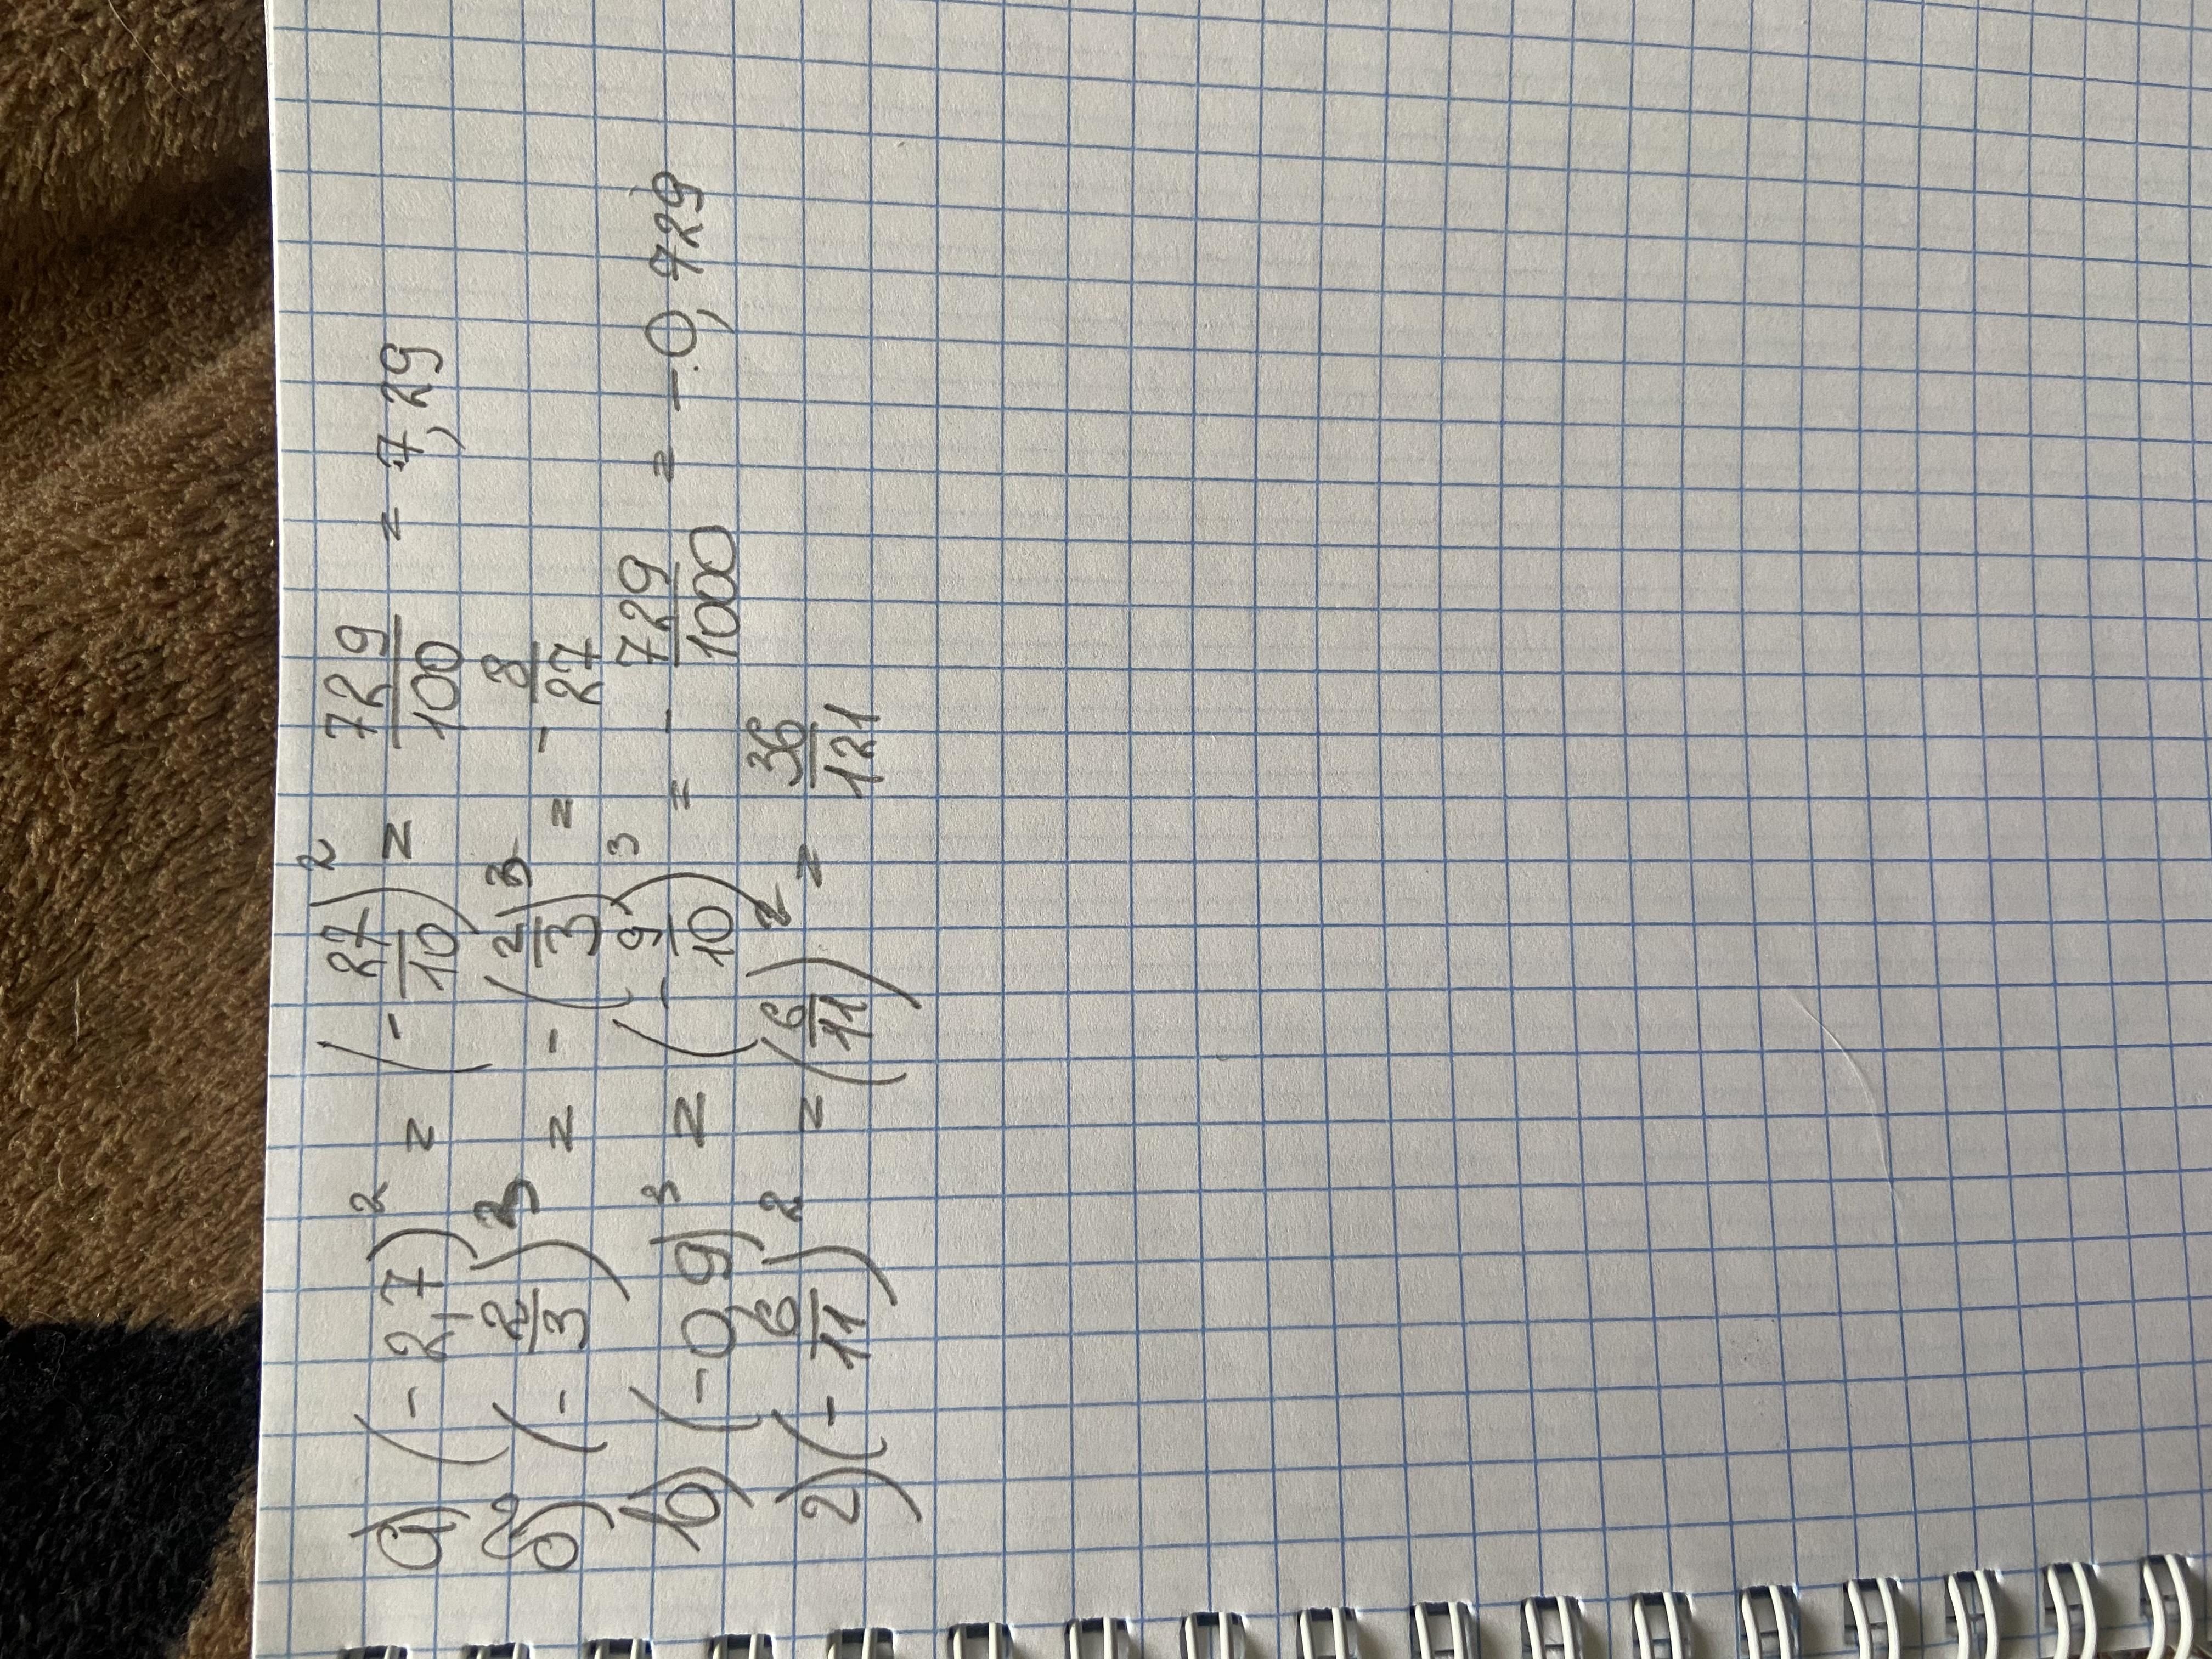 а) (-2,7)² = (-27/10)² = 729/100 = 7,29
б) (-2/3)³ = -(2/3)³ = -8/27
в) (-0,9)³ = (-9/10)³ = -729/1000 = -0,729
г) (-6/11)² = (6/11)² = 36/121